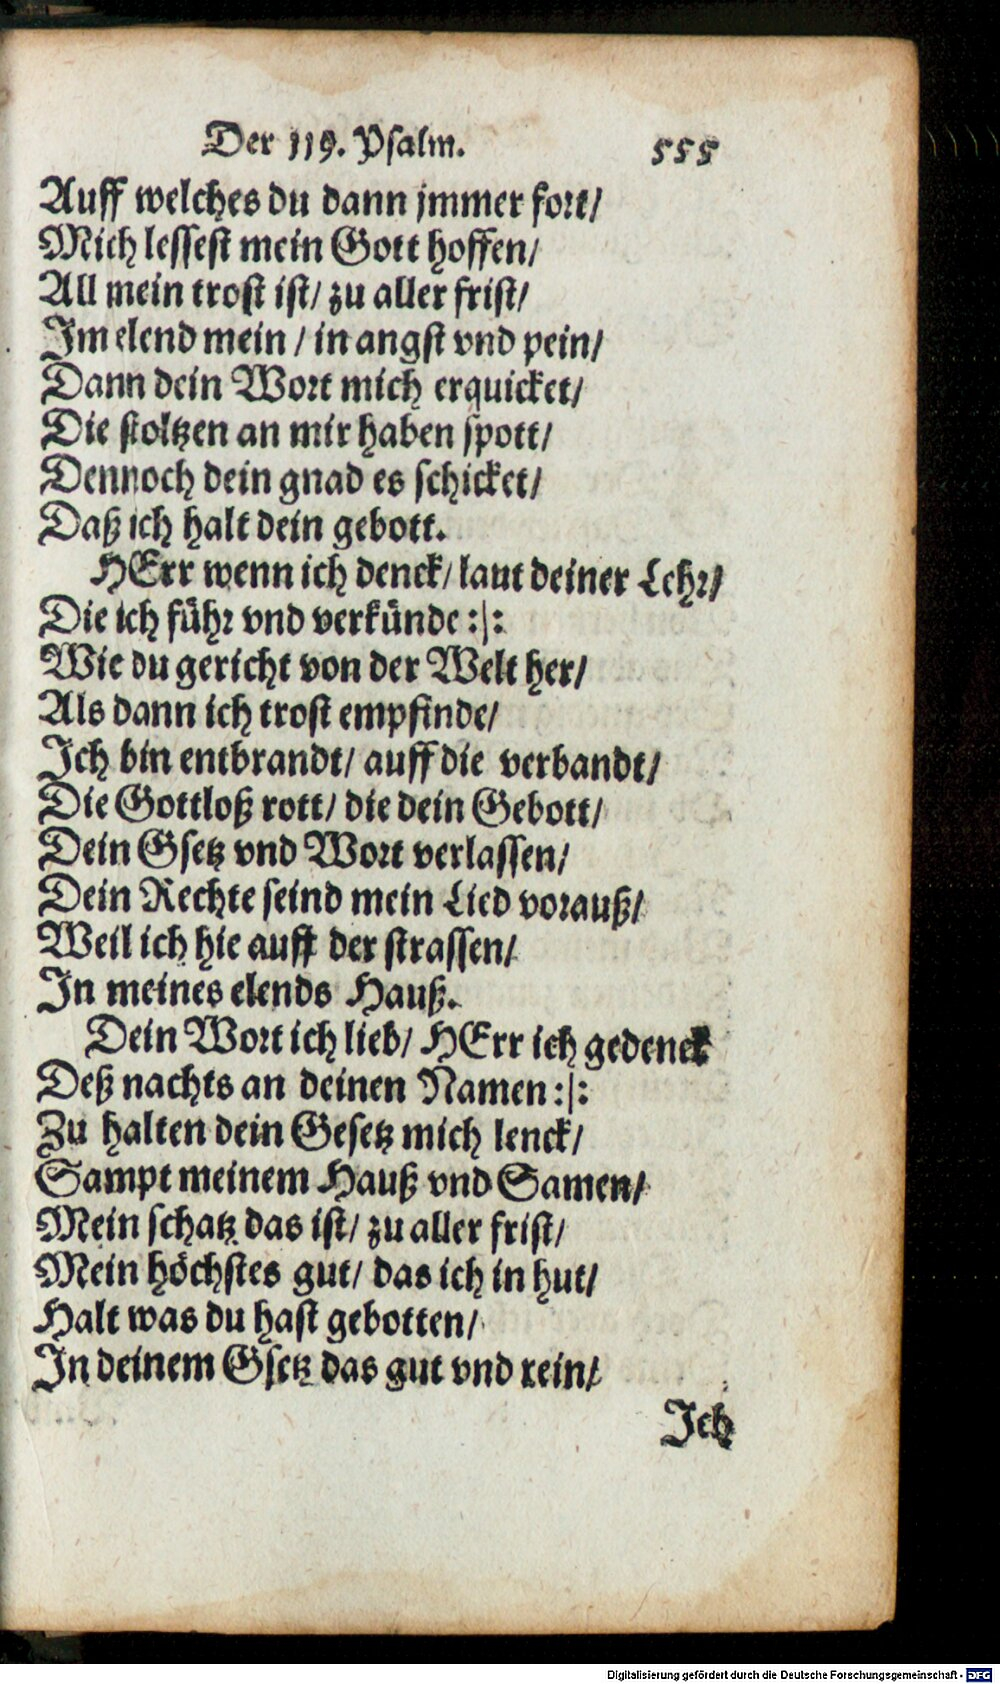 Der 119. Psalm. 555
Auff welches du dann jmmer fort/
Mich lessest mein Gott hoffen/
All mein trost ist/ zu aller frist/
Im elend mein / in angst vnd pein/
Dann dein Wort mich erquicket/
Die stoltzen an mir haben spott/
Dennoch dein gnad es schicket/
Daß ich halt dein gebott.
HErr wenn ich denck/ laut deiner Lehr/
Die ich führ vnd verkünde :|:
Wie du gericht von der Welt her/
Als dann ich trost empfinde/
Ich bin entbrandt/ auff die verbandt/
Die Gottloß rott/ die dein Gebott/
Dein Gsetz vnd Wort verlassen/
Dein Rechte seind mein Lied vorauß/
Weil ich hie auff der strassen/
In meines elends Hauß.
Dein Wort ich lieb/ HErr ich gedenck
Deß nachts an deinen Namen :|:
Zu halten dein Gesetz mich lenck/
Sampt meinem Hauß vnd Samen/
Mein schatz das ist/ zu aller frist/
Mein höchstes gut/ das ich in hut/
Halt was du hast gebotten/
In deinem Gsetz das gut vnd rein/
Ich
Digitalisierung gefördert durch die Deutsche Forschungsgemeinschaft - DFG